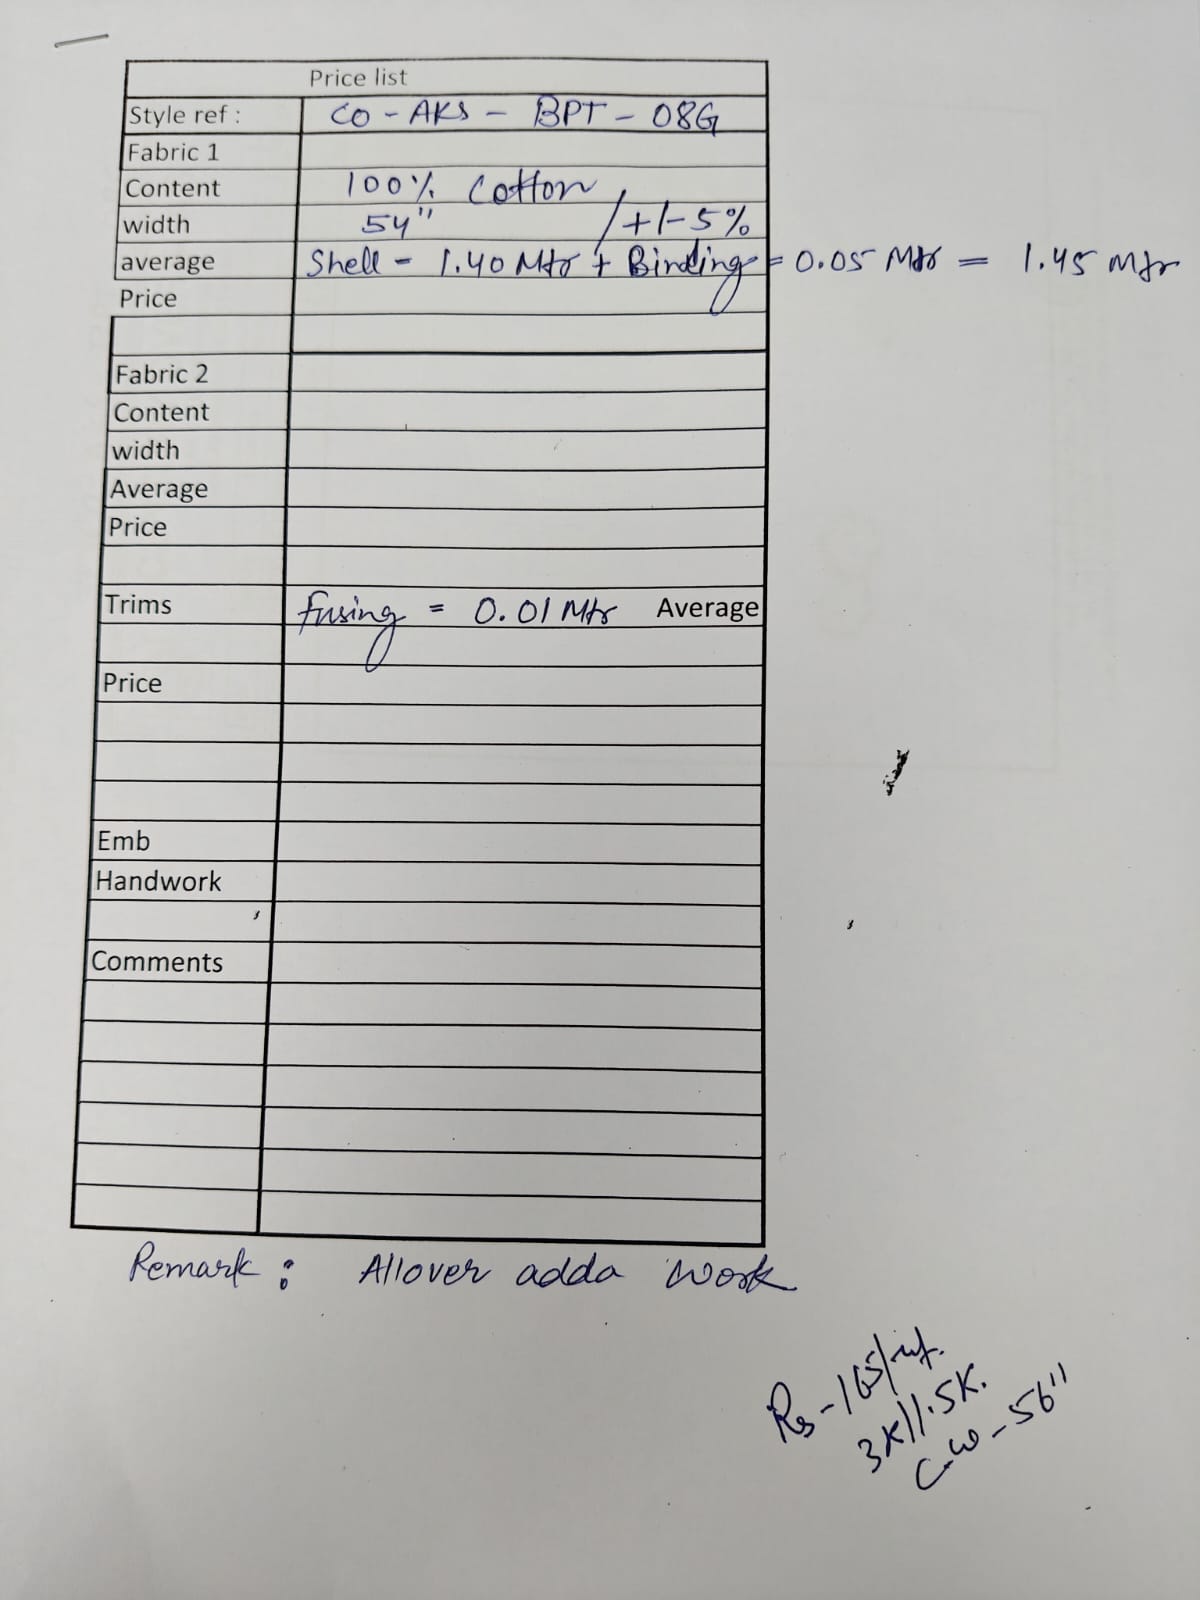 Price list
Style ref : CO - AKS - BPT - 08G
Fabric 1
Content 100% Cotton
width 54" /+/-5%
average Shell - 1.40 Mtr + Binding = 0.05 Mtr = 1.45 Mtr
Price
Fabric 2
Content
width
Average
Price
Trims Fusing = 0.01 Mtr Average
Price
Emb
Handwork
Comments
Remark : Allover adda work
Rs-165/
3K/1.5K.
C.W-56"